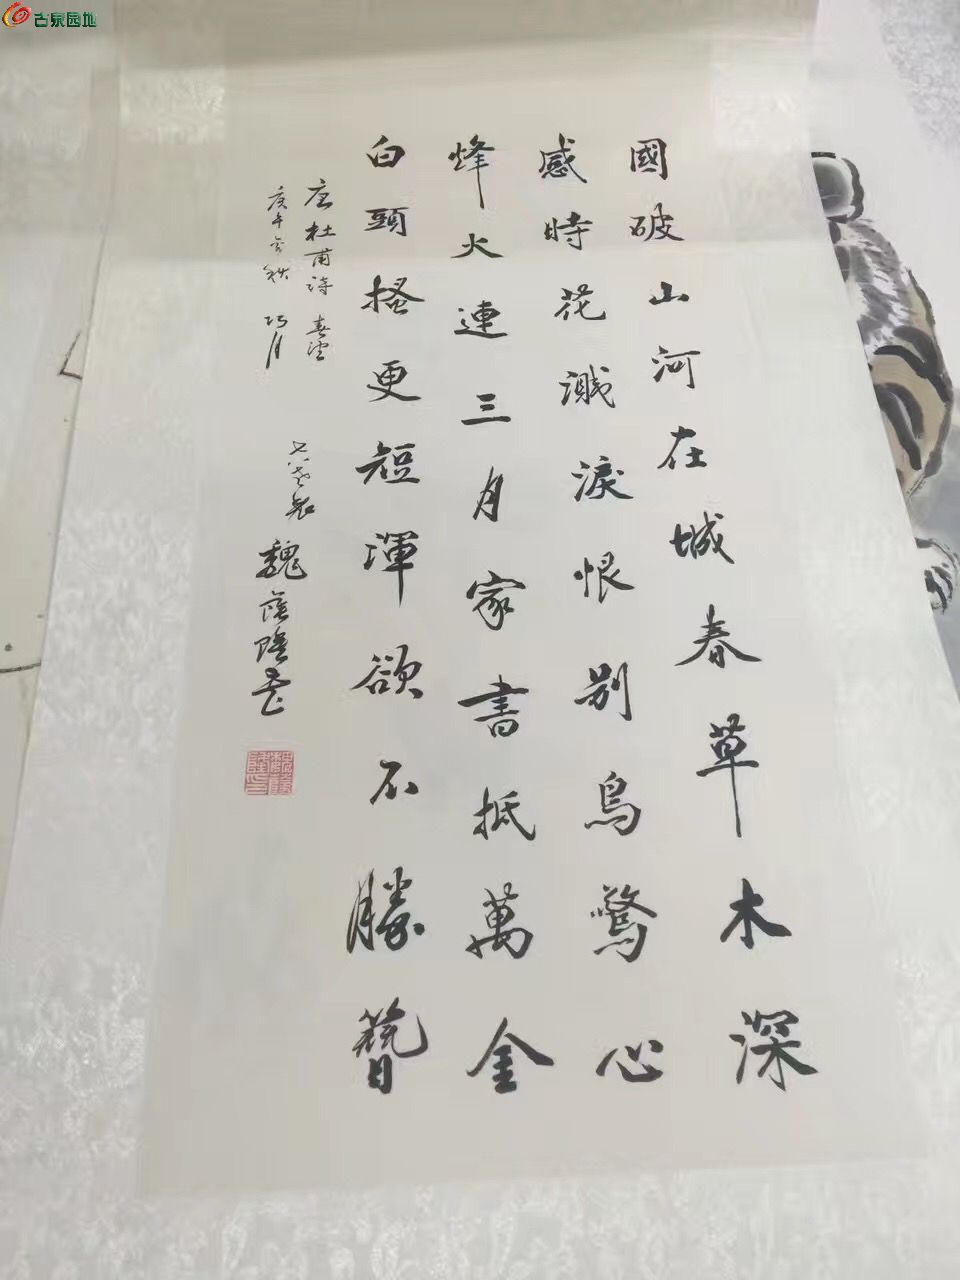 古泉园地
國破山河在城春草木深
感時花濺淚恨别鳥驚心
烽火連三月家書抵萬金
白頭搔更短渾欲不勝簪
唐杜甫詩 春望
庚午 秋 巧月
魏蔭隆書